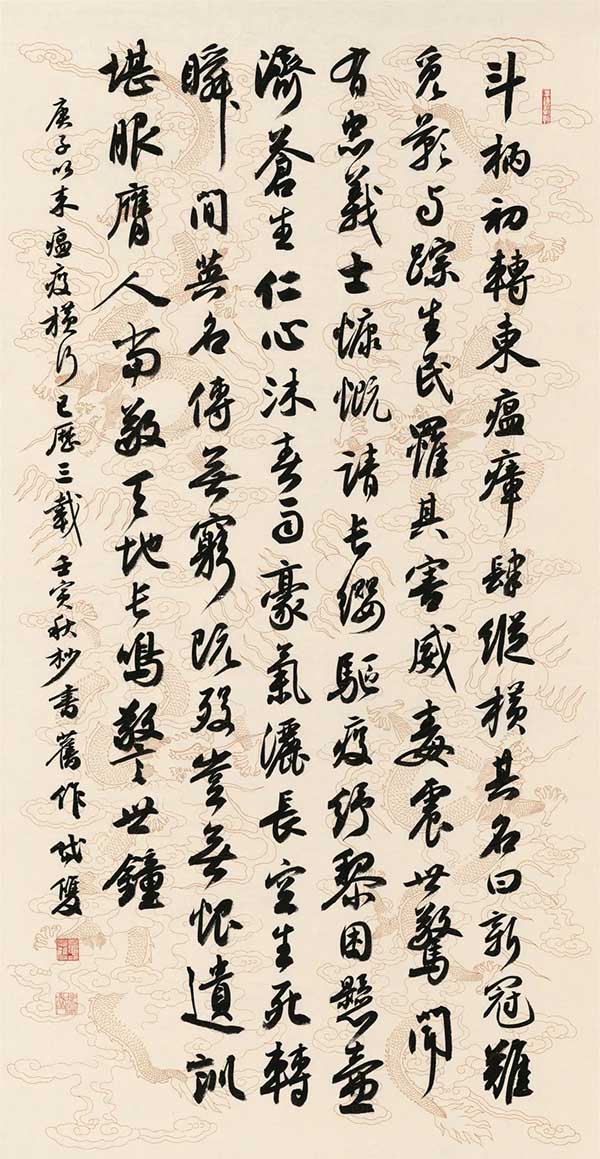 斗柄初轉東瘟瘴肆縱横其名曰新冠難
覓影与踪生民罹其害威毒震世驚聞
有忠義士慷慨請长纓驅疫紓黎困懸壺
濟蒼生仁心沐春雨豪氣灑長空生死轉
瞬间英名傳無窮既殁豈無恨遺訓
堪服膺人當敬天地长鳴警世鐘
庚子以来瘟疫橫行已歷三載壬寅秋杪書舊作